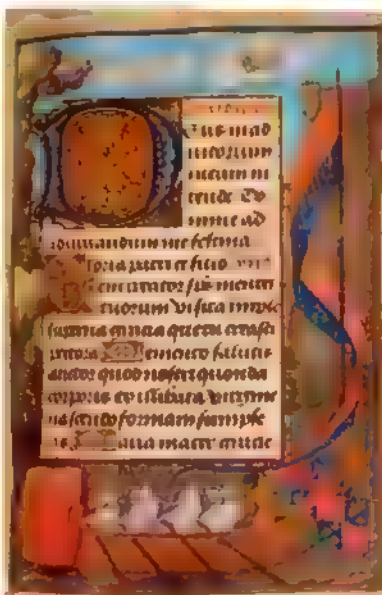 eus in ad
iutorium
meum in
tende Do
mine ad
adiuuandum me festina
loria patri et filio
eni creator sps mentes
tuorum visita imple
superna gratia que tu creasti
pectora Memento salutis
auctor quod nostri quonda
corporis ex illibata virgine
nascendo formam sumpse
ris Maria mater gratie